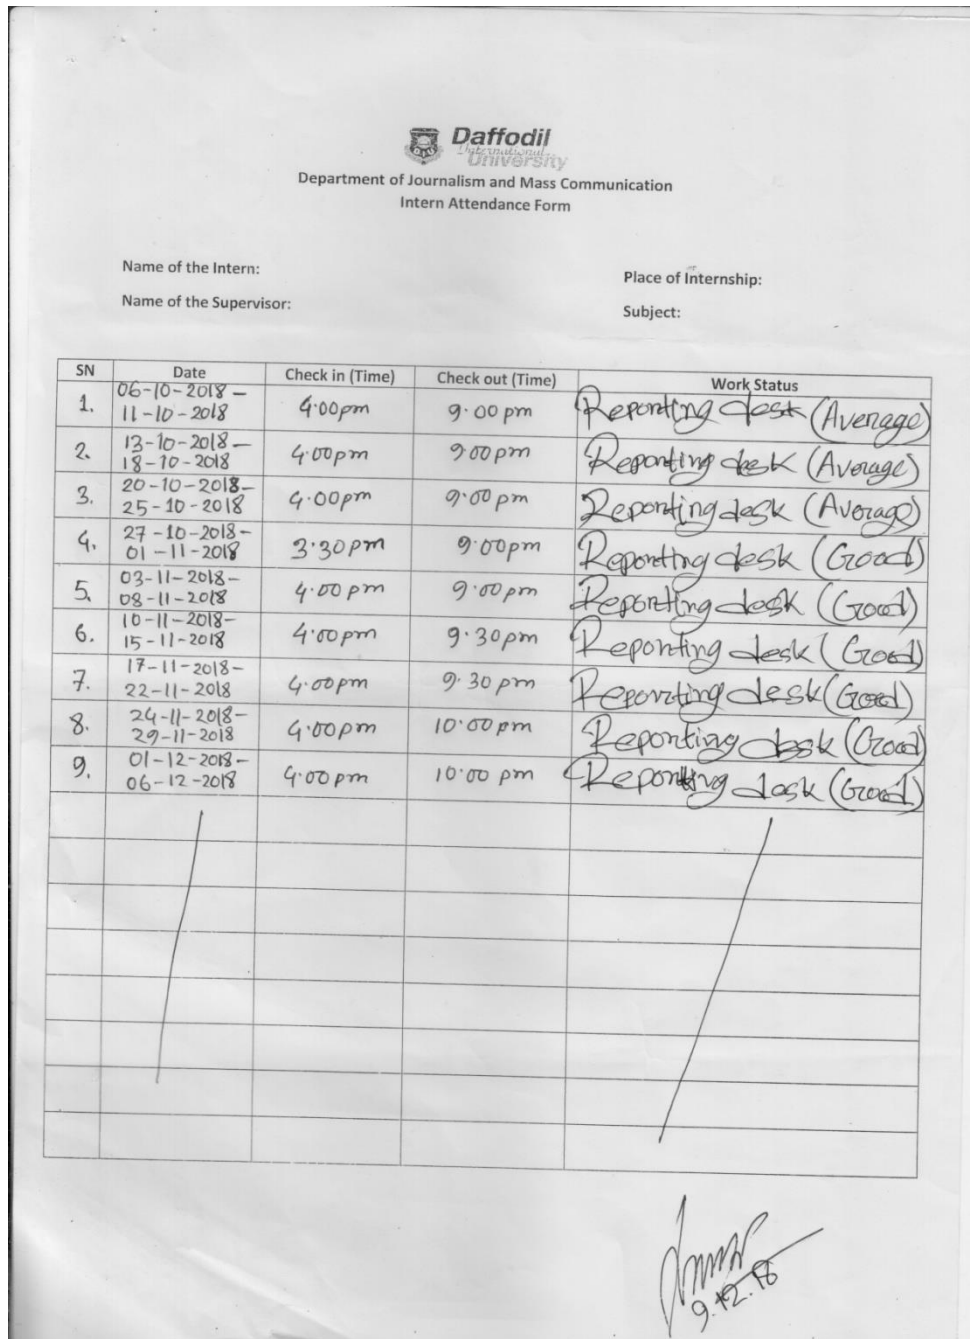 Daffodil
International
University
Department of Journalism and Mass Communication
Intern Attendance Form
Name of the Intern:
Place of Internship:
Name of the Supervisor:
Subject:
SN Date Check in (Time) Check out (Time) Work Status
1. 06-10-2018 – 11-10-2018 4:00pm 9:00 pm Reporting desk (Average)
2. 13-10-2018 – 18-10-2018 4:00pm 9:00pm Reporting desk (Average)
3. 20-10-2018 – 25-10-2018 4:00pm 9:00pm Reporting desk (Average)
4. 27-10-2018 – 01-11-2018 3:30pm 9:00pm Reporting desk (Good)
5. 03-11-2018 – 08-11-2018 4:00pm 9:00pm Reporting desk (Good)
6. 10-11-2018 – 15-11-2018 4:00pm 9:30pm Reporting desk (Good)
7. 17-11-2018 – 22-11-2018 4:00pm 9:30 pm Reporting desk (Good)
8. 24-11-2018 – 29-11-2018 4:00pm 10:00 pm Reporting desk (Good)
9. 01-12-2018 – 06-12-2018 4:00 pm 10:00 pm Reporting desk (Good)
9.12.18